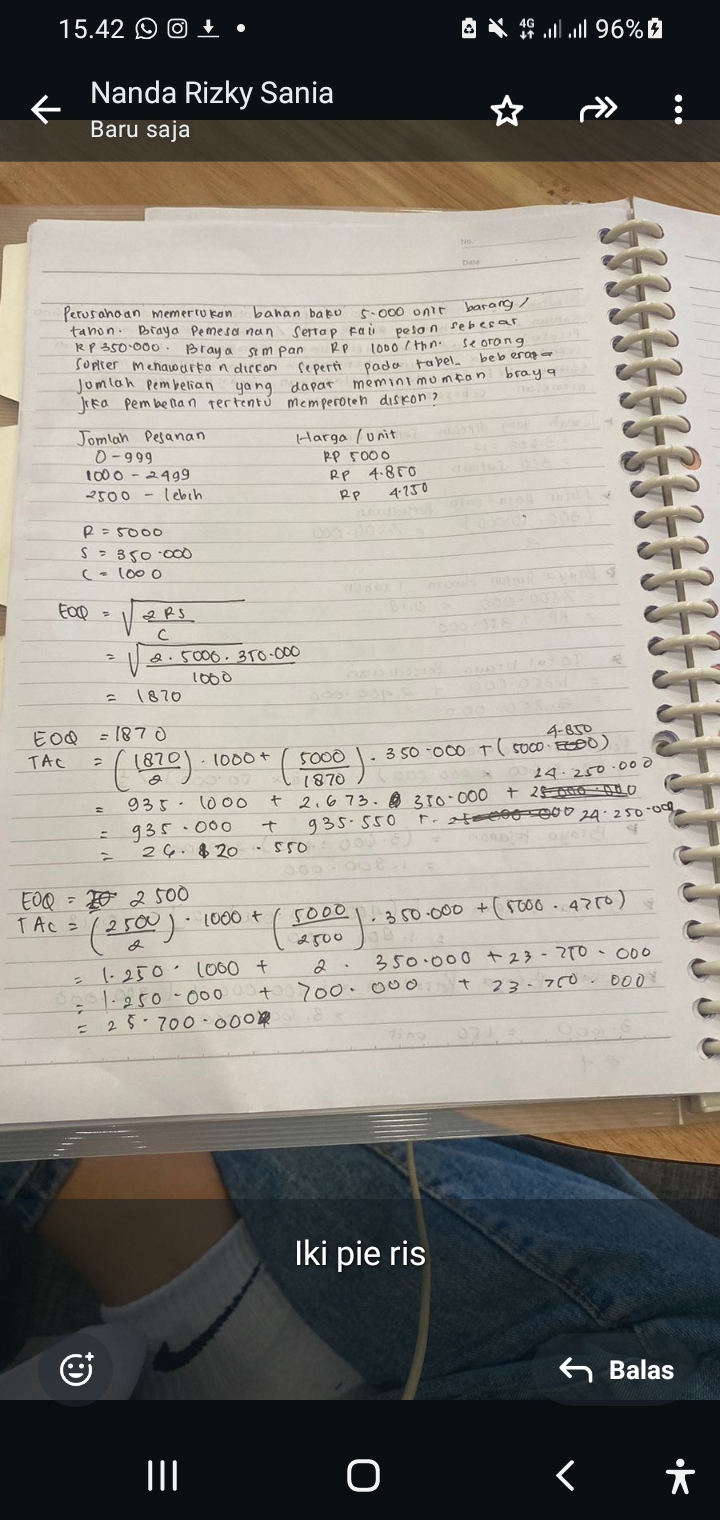 15.42
4G
96%
Nanda Rizky Sania
Baru saja
No.
Date
Perusahaan memerlukan bahan baku 5.000 unit barang/
tahun. Biaya Pemesanan setiap kali pesan sebesar
RP 350.000. Biaya simpan Rp 1000/thn. seorang
Suplier menawarkan diskon seperti pada tabel. beberapa
Jumlah pembelian yang dapat meminimumkan biaya
Jika pembelian tertentu memperoleh diskon?
Jumlah Pesanan Harga / Unit
0 - 999 RP 5000
1000 - 2499 RP 4.850
2500 - lebih Rp 4.750
R = 5000
S = 350.000
C = 1000
EOQ = √ 2 RS / C
= √ 2. 5000. 350.000 / 1000
= 1870
EOQ = 1870
4.850
TAC = (1870 / 2) . 1000 + (5000 / 1870) . 350.000 + (5000. 5000)
24.250.000
= 935. 1000 + 2,673. 350.000 + 25.000.000
= 935.000 + 935.550 + 25.000.000 24.250.000
= 26.120.550
EOQ = 2500
TAC = (2500 / 2) . 1000 + (5000 / 2500) . 350.000 + (5000. 4750)
= 1.250. 1000 + 2. 350.000 + 23.750.000
= 1.250.000 + 700.000 + 23.750.000
= 25.700.000
Iki pie ris
Balas